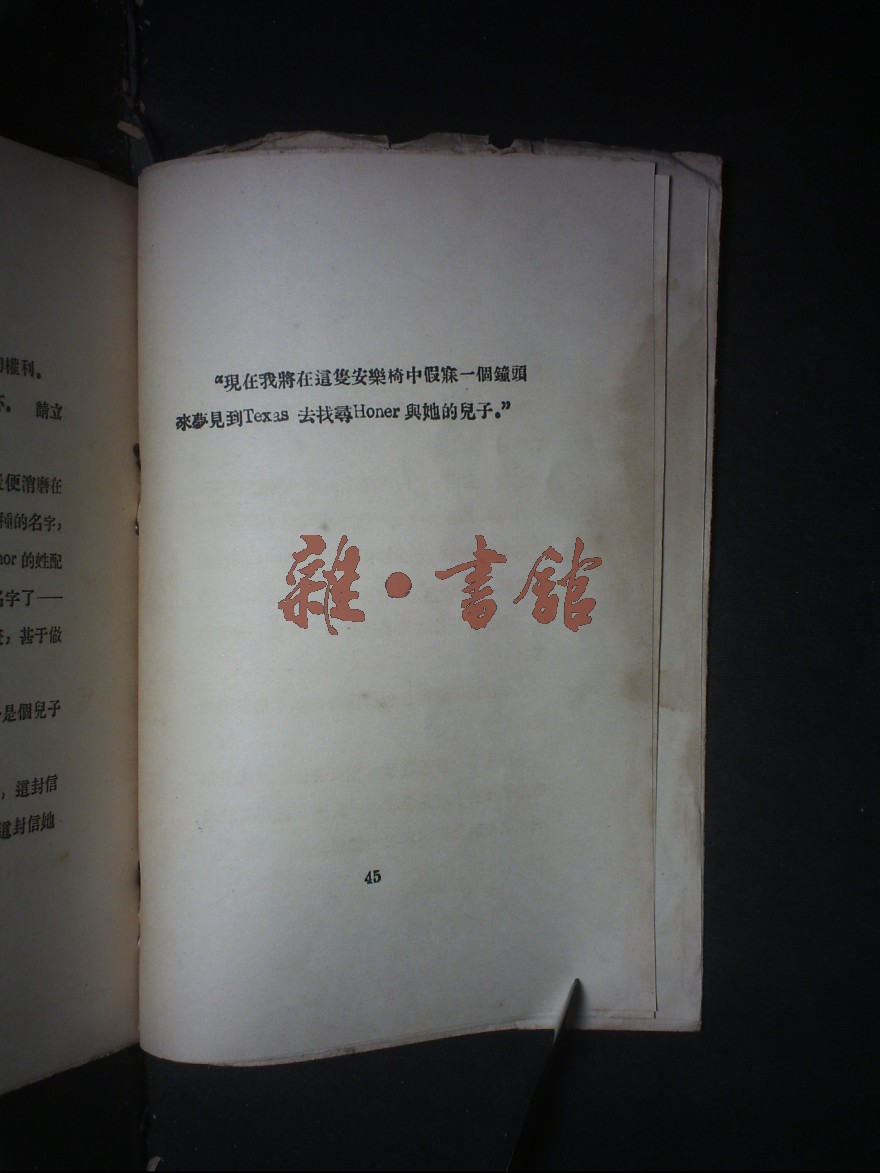 的權利。
請立
便消磨在
種的名字，
nor 的姓配
名字了——
，甚于做
是個兒子
，這封信
這封信她
“現在我將在這隻安樂椅中假寐一個鐘頭
來夢見到Texas 去找尋Honer 與她的兒子。”
雜·書館
45